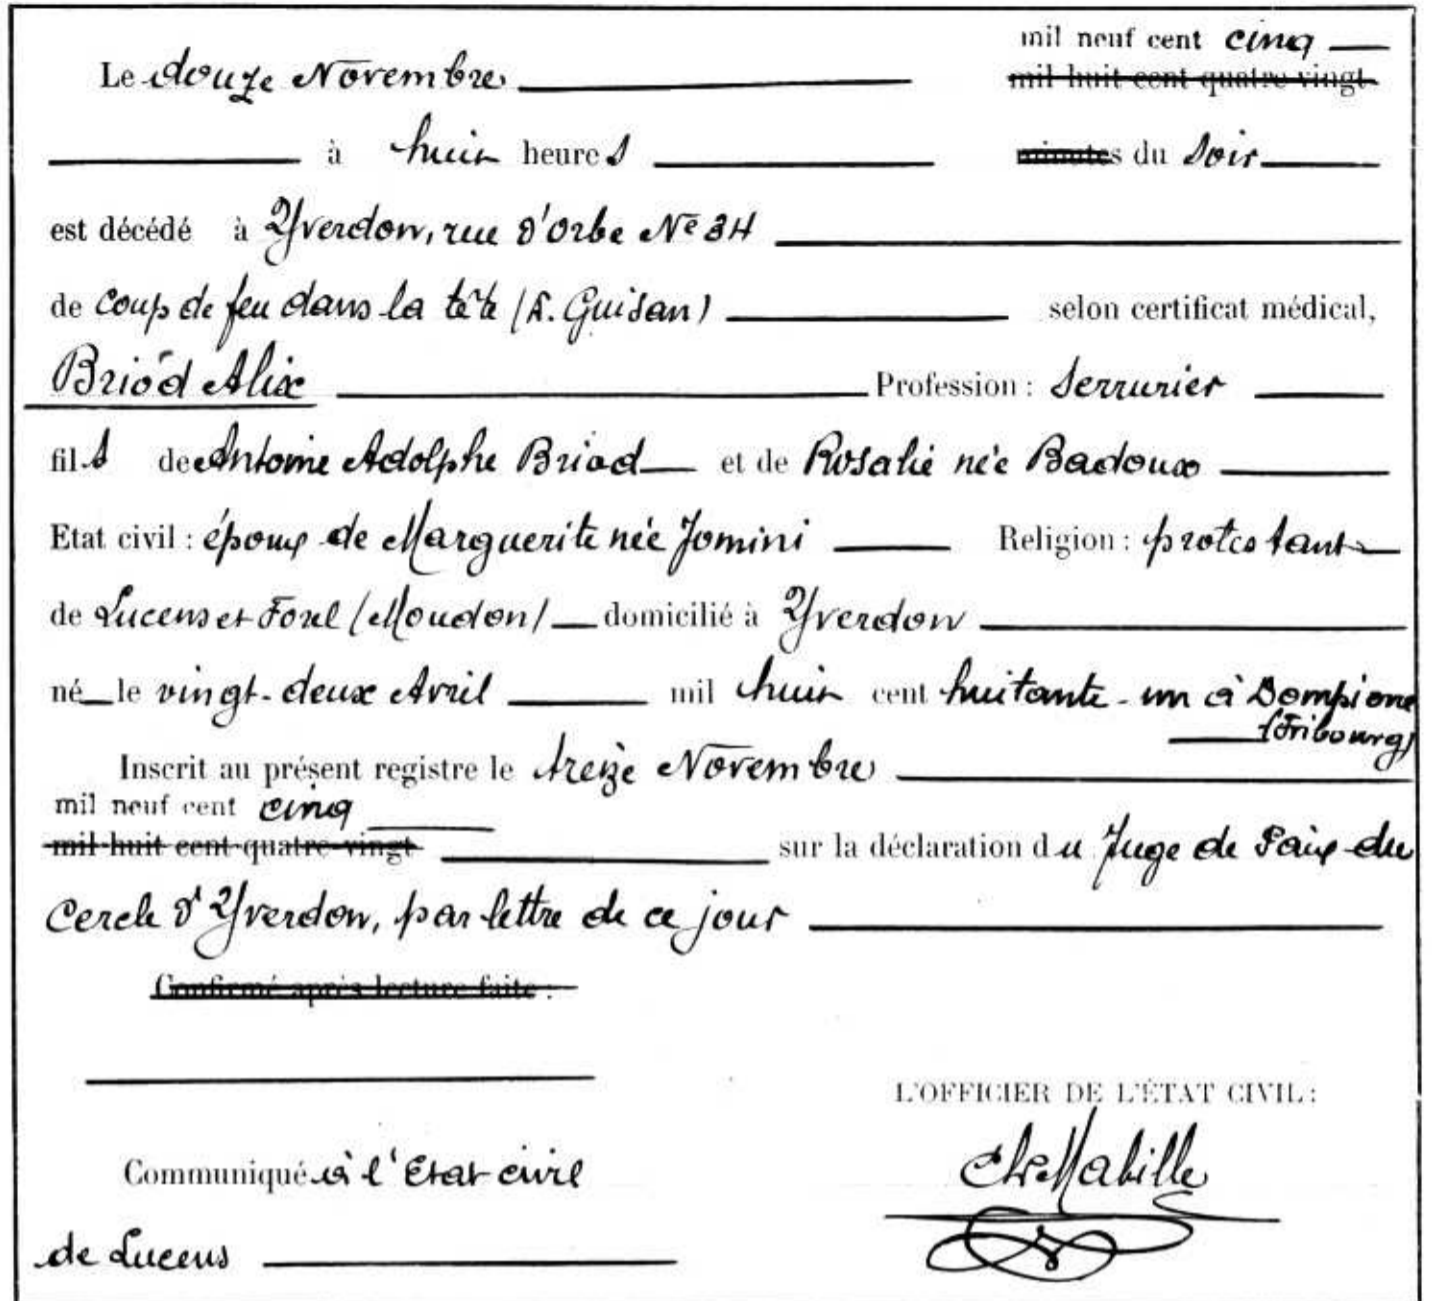 mil neuf cent cinq
Le douze Novembre mil huit cent quatre-vingt
à huit heures minutes du soir
est décédé à Yverdon, rue d'Orbe No 34
de coup de feu dans la tête (A. Guisan) selon certificat médical,
Briod Alix Profession : Serrurier
fils de Antoine Adolphe Briod et de Rosalie née Badoux
Etat civil : époux de Marguerite née Jomini Religion : protestant
de Lucens et Forel (Moudon) domicilié à Yverdon
né le vingt-deux Avril mil huit cent huitante-un à Dompierre
(Fribourg)
Inscrit au présent registre le treize Novembre
mil neuf cent cinq
mil huit cent quatre-vingt sur la déclaration du Juge de Paix du
Cercle d'Yverdon, par lettre de ce jour
Confirmé après lecture faite :
L'OFFICIER DE L'ÉTAT CIVIL :
Communiqué à l'Etat civil Ch. Mabille
de Lucens